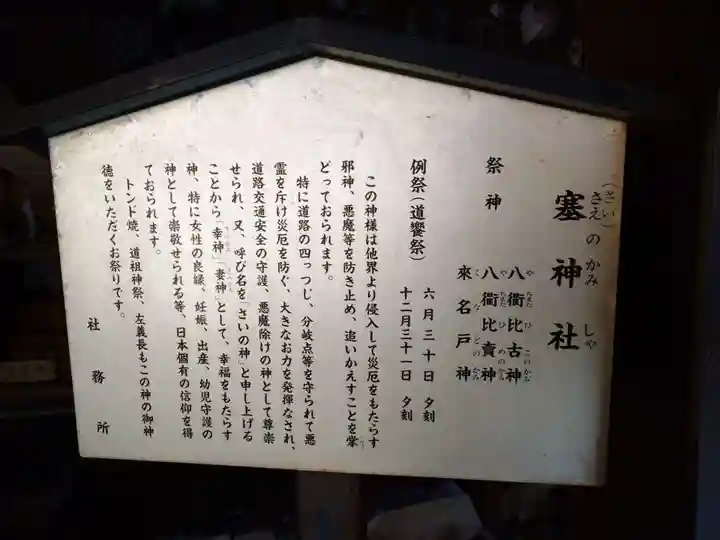 塞神社
(さい)
さえのかみ しや
祭神
八衢比古神
やちまたひこのかみ
八衢比賣神
やちまたひめのかみ
來名戸神
くなどのかみ
例祭(道饗祭) 六月三十日 夕刻
十二月三十一日 夕刻
この神様は他界より侵入して災厄をもたらす
邪神、悪魔等を防ぎ止め、追いかえすことを掌
どっておられます。
特に道路の四っつじ、分岐点等を守られて悪
霊を斥け災厄を防ぐ、大きなお力を発揮なされ、
道路交通安全の守護、悪魔除けの神として尊崇
せられ、又、呼び名を「さいの神」と申し上げる
ことから「幸神」「妻神」として、幸福をもたらす
神、特に女性の良縁、妊娠、出産、幼児守護の
神として崇敬せられる等、日本個有の信仰を得
ておられます。
トンド焼、道祖神祭、左義長もこの神の御神
徳をいただくお祭りです。
社務所